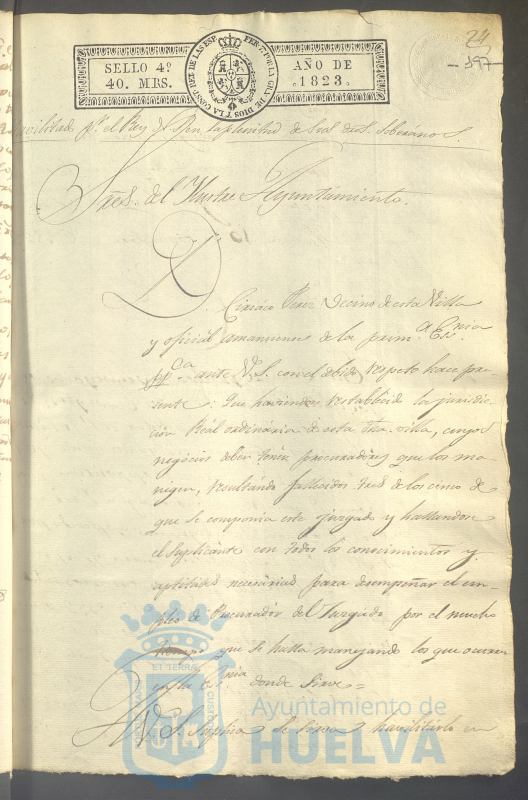 24
397
SELLO 4º
40. MRS.
FERN. 7º POR LA GR. DE DIOS Y LA CONST. REY DE LAS ESP.
AÑO DE
1823.
havilitado pr. el Rey
Soberano S.
Sres. del Ilustre Ayuntamiento.
D. Ciriaco Perez Vecino de esta Villa
y oficial amanuense de la prim.a Es.nia
pp.ca ante V.S. con el debido respeto hace pre-
sente: Que haviendose restablecido la jurisdic-
ción Real ordinária de esta dha. villa, cuyos
negócios deben tener procuradores que los ma-
nigen, resultando fallecidos tres de los cinco de
que se componia este juzgado y hallandose
el suplicante con todos los conocimientos y
aptitudes necesárias para desempeñar el em-
pleo de Procurador del Juzgado por el mucho
tiempo que se halla manejando los que ocurren
en la Es.nia donde sirve =
A V.S. Suplica Se sirva havilitarlo en
Ayuntamiento de
HUELVA